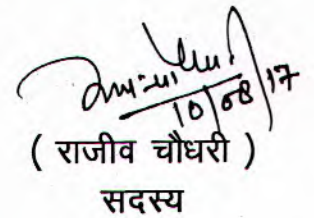 10/08/17
( राजीव चौधरी )
सदस्य